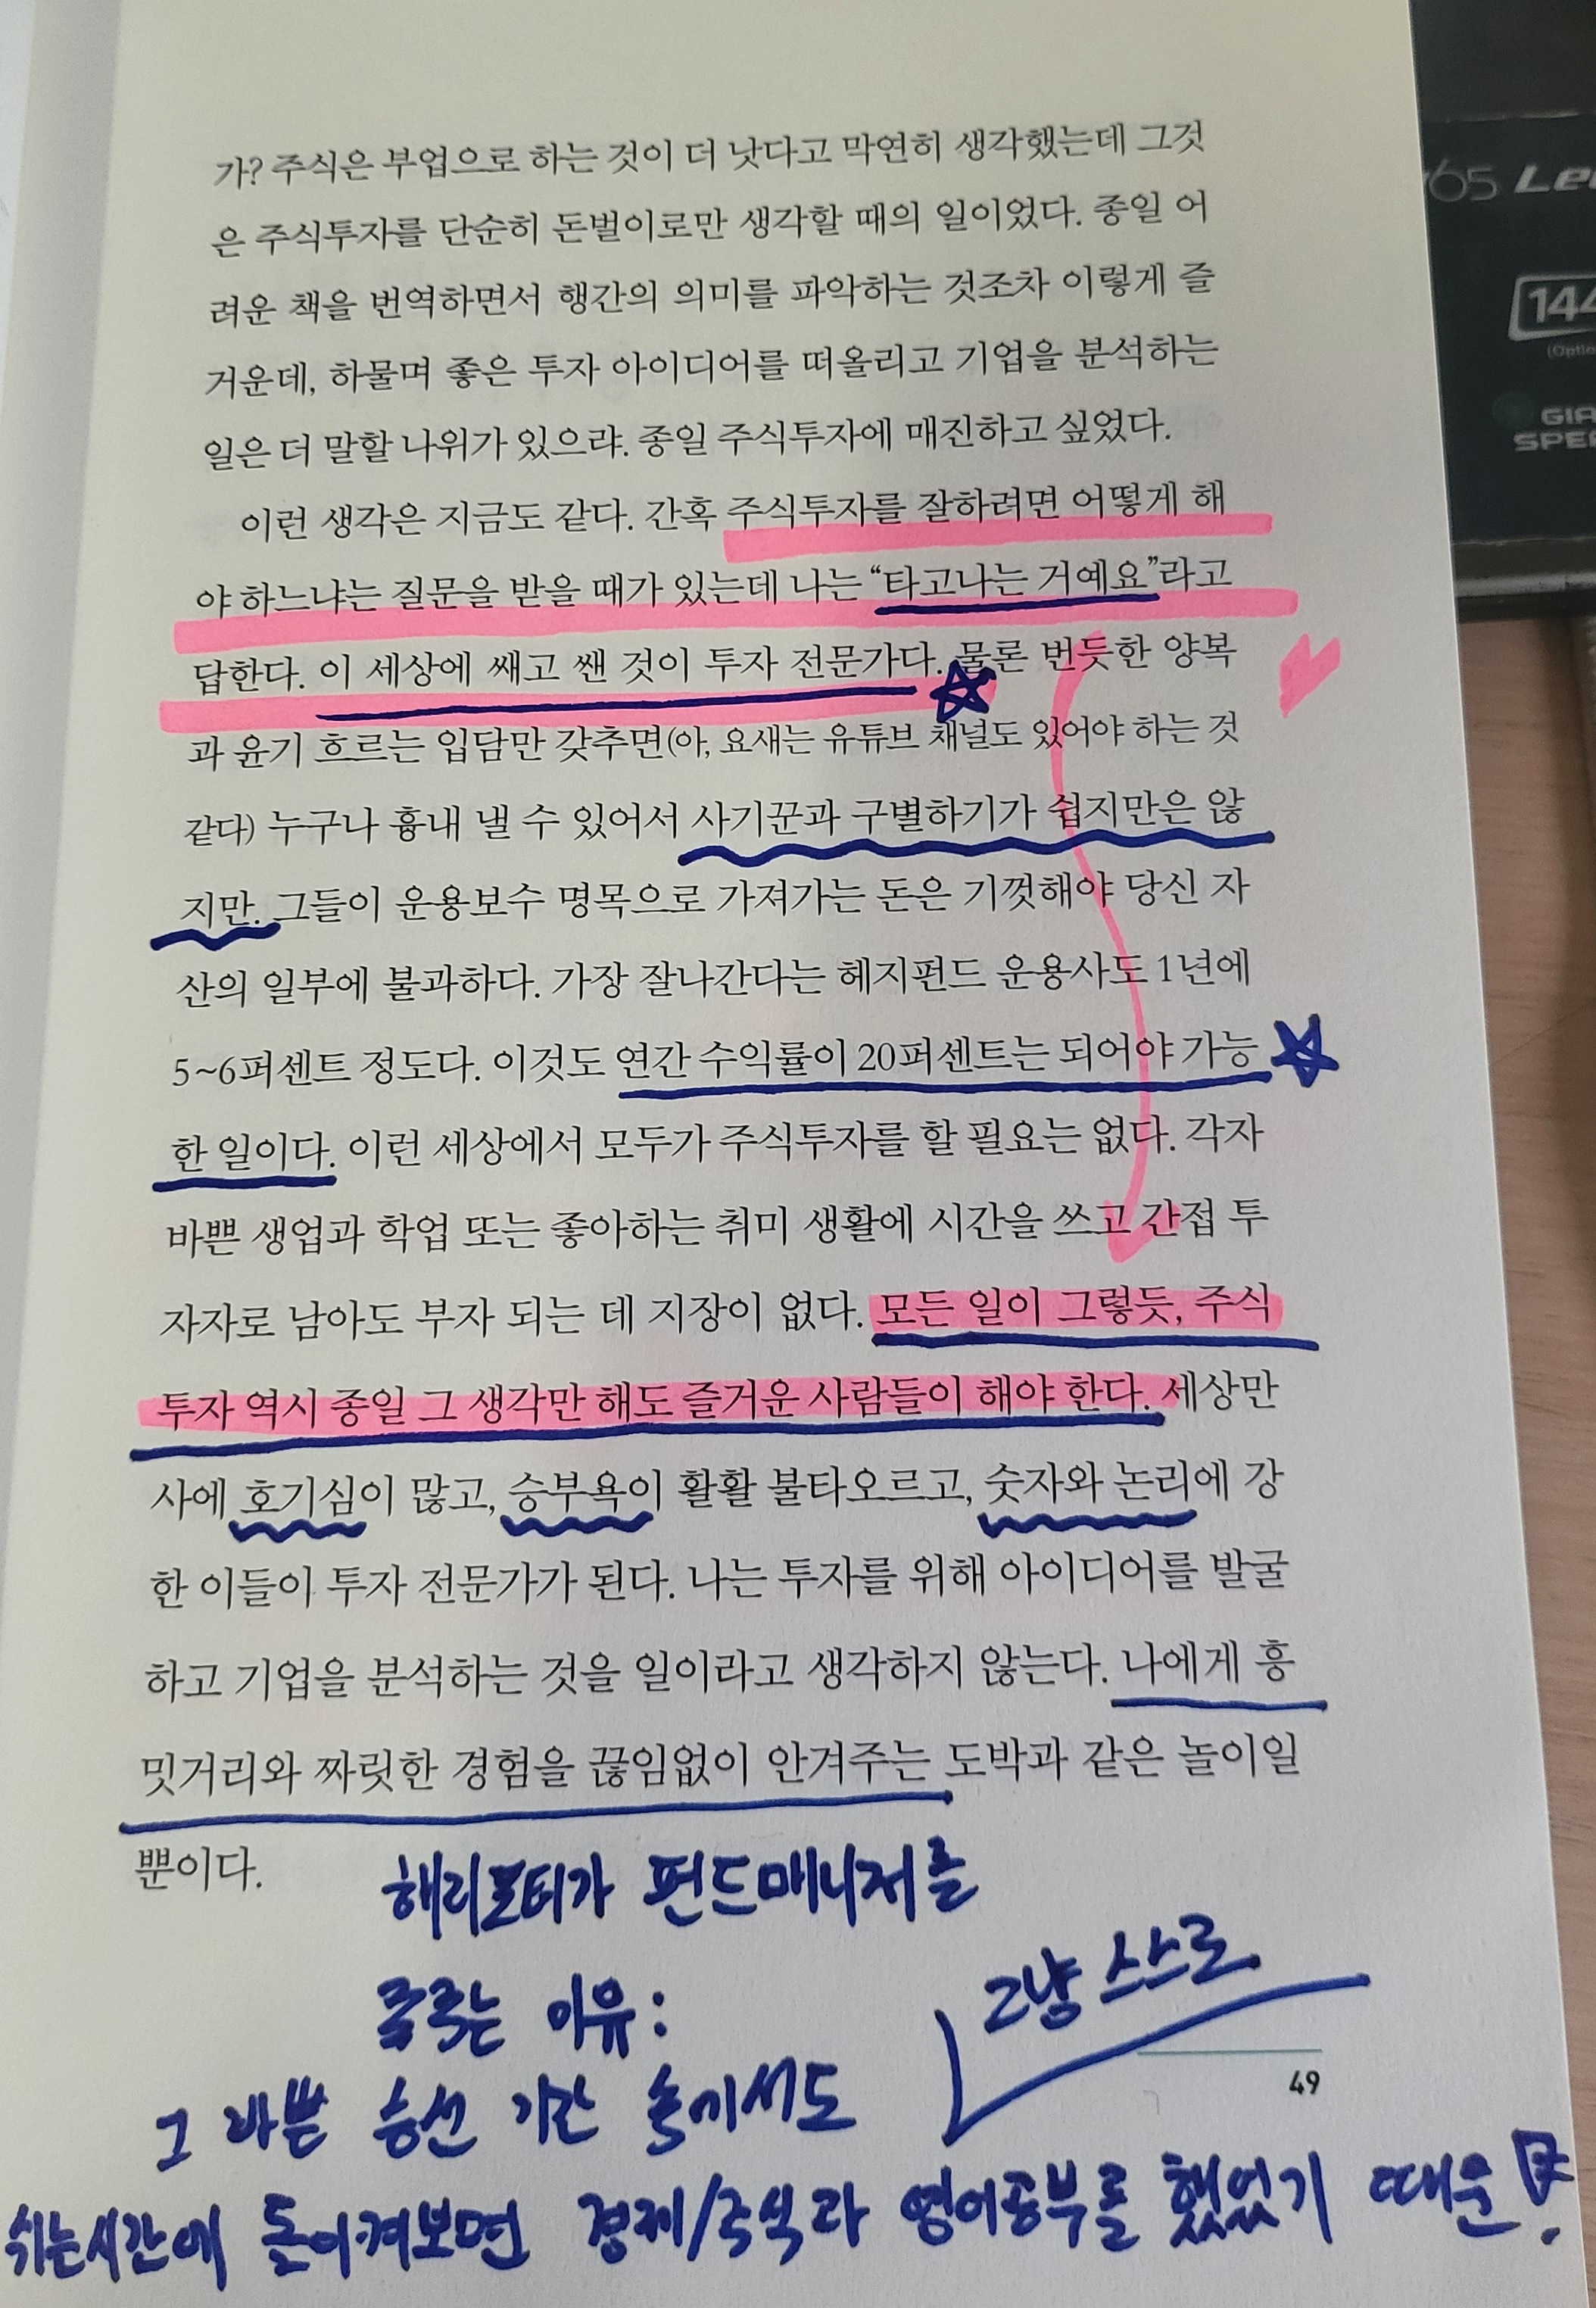 가? 주식은 부업으로 하는 것이 더 낫다고 막연히 생각했는데 그것
은 주식투자를 단순히 돈벌이로만 생각할 때의 일이었다. 종일 어
려운 책을 번역하면서 행간의 의미를 파악하는 것조차 이렇게 즐
거운데, 하물며 좋은 투자 아이디어를 떠올리고 기업을 분석하는
일은 더 말할 나위가 있으랴. 종일 주식투자에 매진하고 싶었다.
이런 생각은 지금도 같다. 간혹 주식투자를 잘하려면 어떻게 해
야 하느냐는 질문을 받을 때가 있는데 나는 “타고나는 거예요”라고
답한다. 이 세상에 쌔고 쌘 것이 투자 전문가다. 물론 번듯한 양복
과 윤기 흐르는 입담만 갖추면(아, 요새는 유튜브 채널도 있어야 하는 것
같다) 누구나 흉내 낼 수 있어서 사기꾼과 구별하기가 쉽지만은 않
지만. 그들이 운용보수 명목으로 가져가는 돈은 기껏해야 당신 자
산의 일부에 불과하다. 가장 잘나간다는 헤지펀드 운용사도 1년에
5~6퍼센트 정도다. 이것도 연간 수익률이 20퍼센트는 되어야 가능
한 일이다. 이런 세상에서 모두가 주식투자를 할 필요는 없다. 각자
바쁜 생업과 학업 또는 좋아하는 취미 생활에 시간을 쓰고 간접 투
자자로 남아도 부자 되는 데 지장이 없다. 모든 일이 그렇듯, 주식
투자 역시 종일 그 생각만 해도 즐거운 사람들이 해야 한다. 세상만
사에 호기심이 많고, 승부욕이 활활 불타오르고, 숫자와 논리에 강
한 이들이 투자 전문가가 된다. 나는 투자를 위해 아이디어를 발굴
하고 기업을 분석하는 것을 일이라고 생각하지 않는다. 나에게 흥
밋거리와 짜릿한 경험을 끊임없이 안겨주는 도박과 같은 놀이일
뿐이다.
해리포터가 펀드매니저를
꿈꾸는 이유:
그냥 스스로
49
그 바쁜 승선 기간 속에서도
쉬는시간에 돌이켜보면 경제/주식과 영어공부를 했었기 때문!
65
144
GIA
SPE